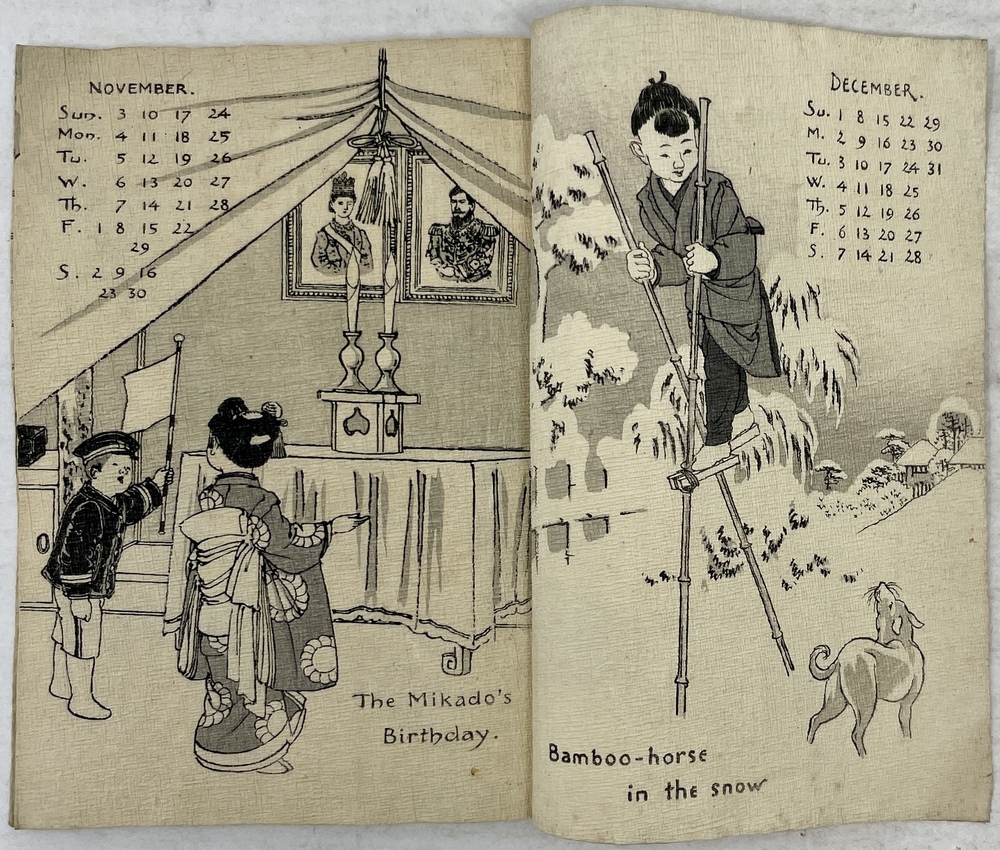 NOVEMBER.
Sun. 3 10 17 24
Mon. 4 11 18 25
Tu. 5 12 19 26
W. 6 13 20 27
Th. 7 14 21 28
F. 1 8 15 22
29
S. 2 9 16
23 30
The Mikado's
Birthday.
DECEMBER.
Su. 1 8 15 22 29
M. 2 9 16 23 30
Tu. 3 10 17 24 31
W. 4 11 18 25
Th. 5 12 19 26
F. 6 13 20 27
S. 7 14 21 28
Bamboo-horse
in the snow